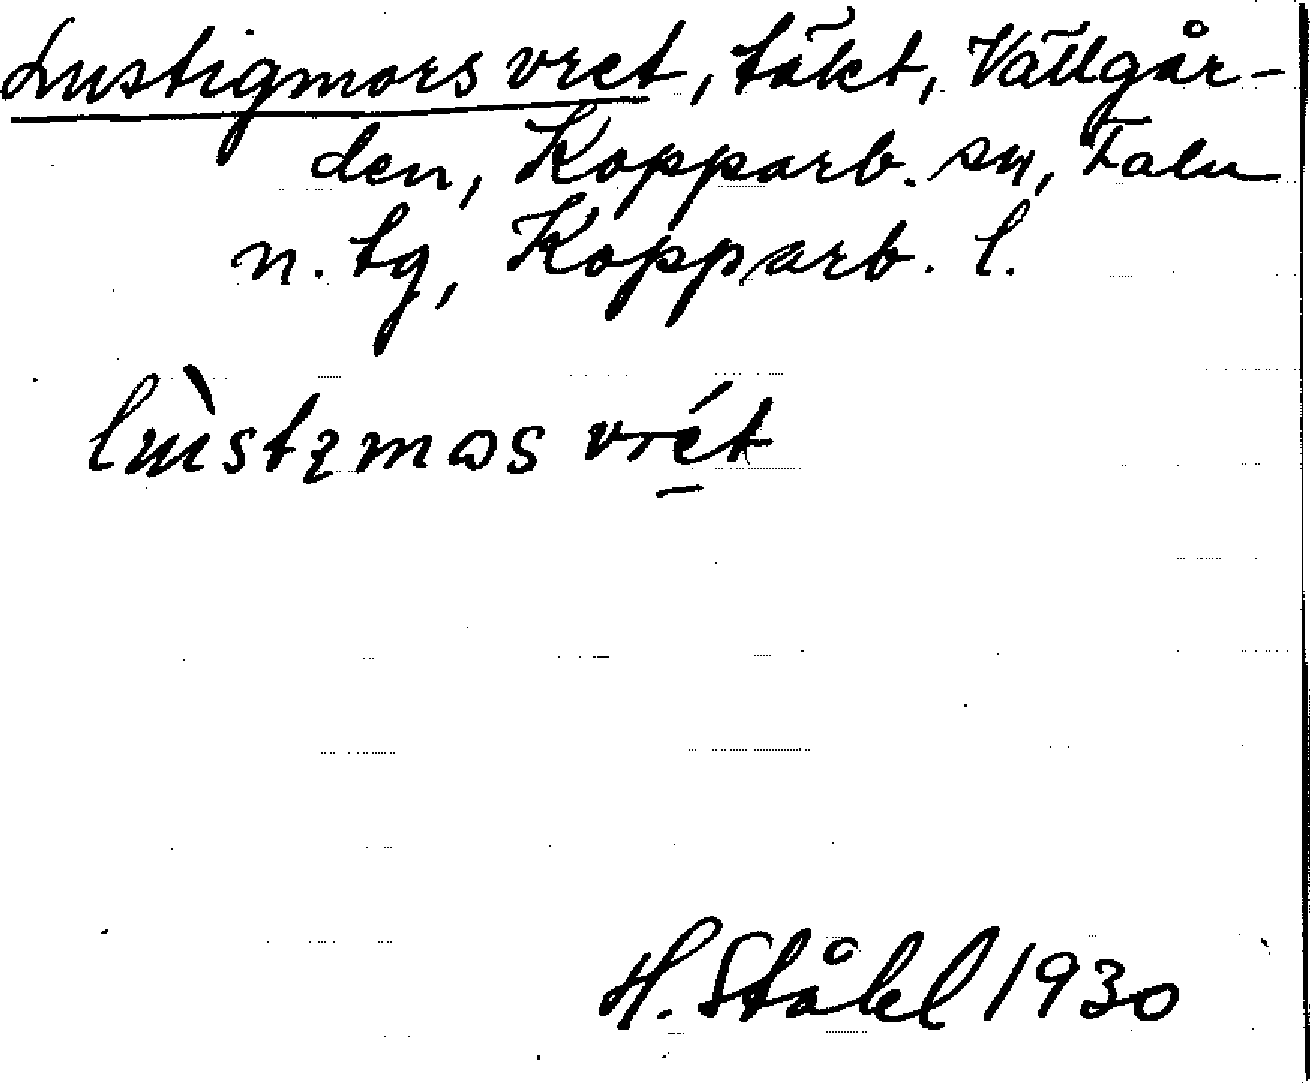 Lustigmors vret, täkt, Vällgår-
den, Kopparb. sn, Falu
n. tg, Kopparb. l.
vrét
H. Ståhl 1930